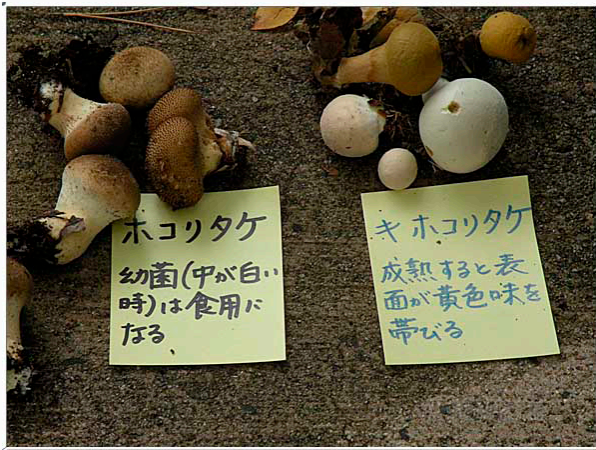 ホコリタケ
幼菌(中が白い
時)は食用に
なる
キホコリタケ
成熟すると表
面が黄色味を
帯びる